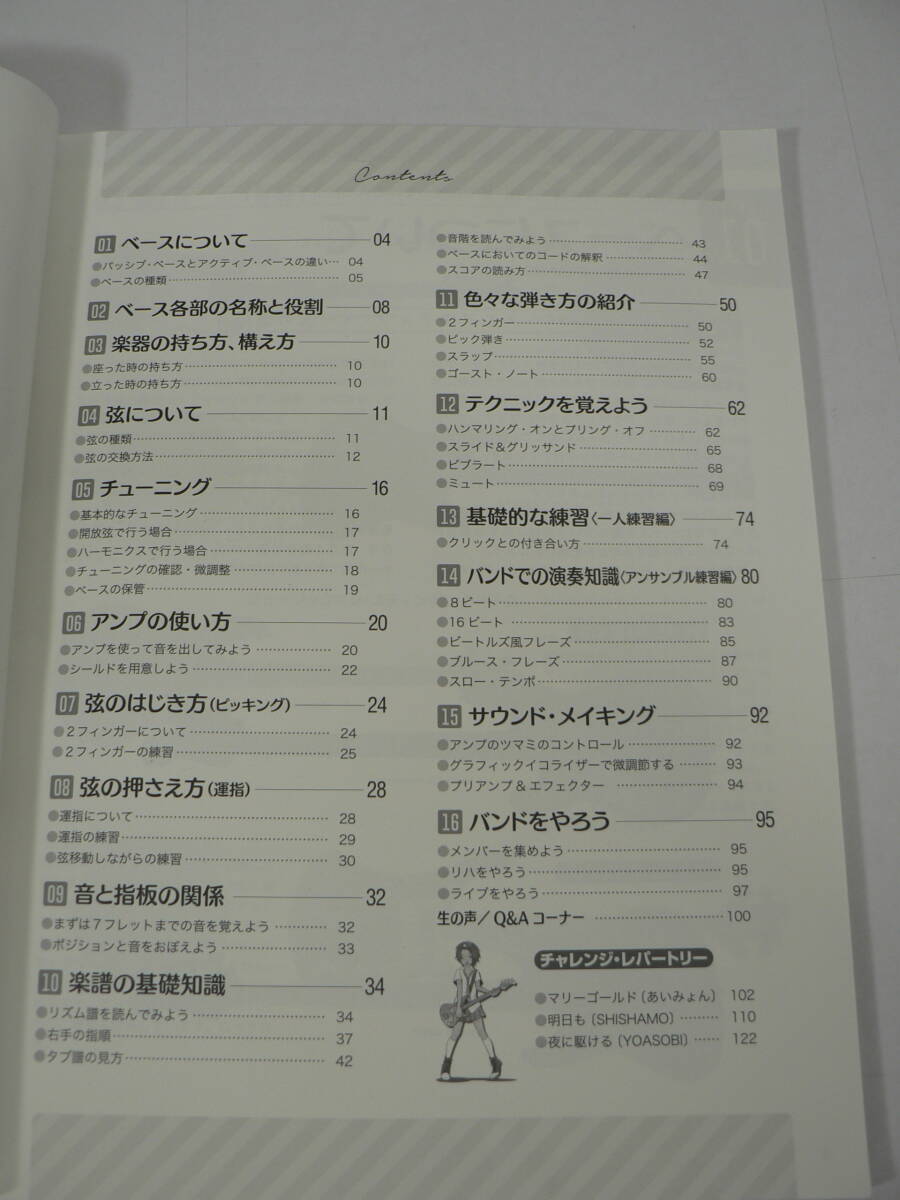 Contents
01 ベースについて 04
●パッシブ・ベースとアクティブ・ベースの違い… 04
●ベースの種類 05
02 ベース各部の名称と役割 08
03 楽器の持ち方、構え方 10
●座った時の持ち方 10
●立った時の持ち方 10
04 弦について 11
●弦の種類 11
●弦の交換方法 12
05 チューニング 16
●基本的なチューニング 16
●開放弦で行う場合 17
●ハーモニクスで行う場合 17
●チューニングの確認・微調整 18
●ベースの保管 19
06 アンプの使い方 20
●アンプを使って音を出してみよう 20
●シールドを用意しよう 22
07 弦のはじき方(ピッキング) 24
●2フィンガーについて 24
●2フィンガーの練習 25
08 弦の押さえ方(運指) 28
●運指について 28
●運指の練習 29
●弦移動しながらの練習 30
09 音と指板の関係 32
●まずは7フレットまでの音を覚えよう 32
●ポジションと音をおぼえよう 33
10 楽譜の基礎知識 34
●リズム譜を読んでみよう 34
●右手の指順 37
●タブ譜の見方 42
●音階を読んでみよう 43
●ベースにおいてのコードの解釈 44
●スコアの読み方 47
11 色々な弾き方の紹介 50
●2フィンガー 50
●ピック弾き 52
●スラップ 55
●ゴースト・ノート 60
12 テクニックを覚えよう 62
●ハンマリング・オンとプリング・オフ 62
●スライド&グリッサンド 65
●ビブラート 68
●ミュート 69
13 基礎的な練習〈一人練習編〉 74
●クリックとの付き合い方 74
14 バンドでの演奏知識〈アンサンブル練習編〉 80
●8ビート 80
●16ビート 83
●ビートルズ風フレーズ 85
●ブルース・フレーズ 87
●スロー・テンポ 90
15 サウンド・メイキング 92
●アンプのツマミのコントロール 92
●グラフィックイコライザーで微調節する 93
●プリアンプ&エフェクター 94
16 バンドをやろう 95
●メンバーを集めよう 95
●リハをやろう 95
●ライブをやろう 97
生の声/Q&Aコーナー 100
チャレンジ・レパートリー
●マリーゴールド〔あいみょん〕 102
●明日も〔SHISHAMO〕 110
●夜に駆ける〔YOASOBI〕 122